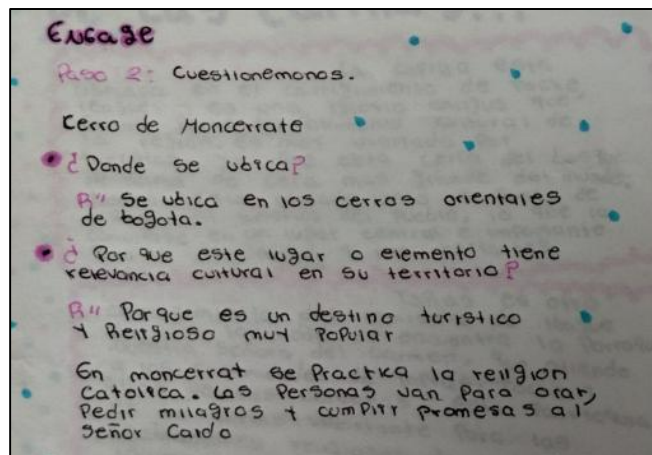 Encage
Paso 2: Cuestionemonos.
Cerro de Moncerrate
¿Donde se ubica?
R" Se ubica en los cerros orientales
de bogota.
¿Por que este lugar o elemento tiene
relevancia cultural en su territorio?
R" Porque es un destino turistico
Y Religioso muy Popular
En moncerrat se Practica la religion
Catolica. Las Personas van Para orar,
Pedir milagros y cumplir promesas al
Señor Caido